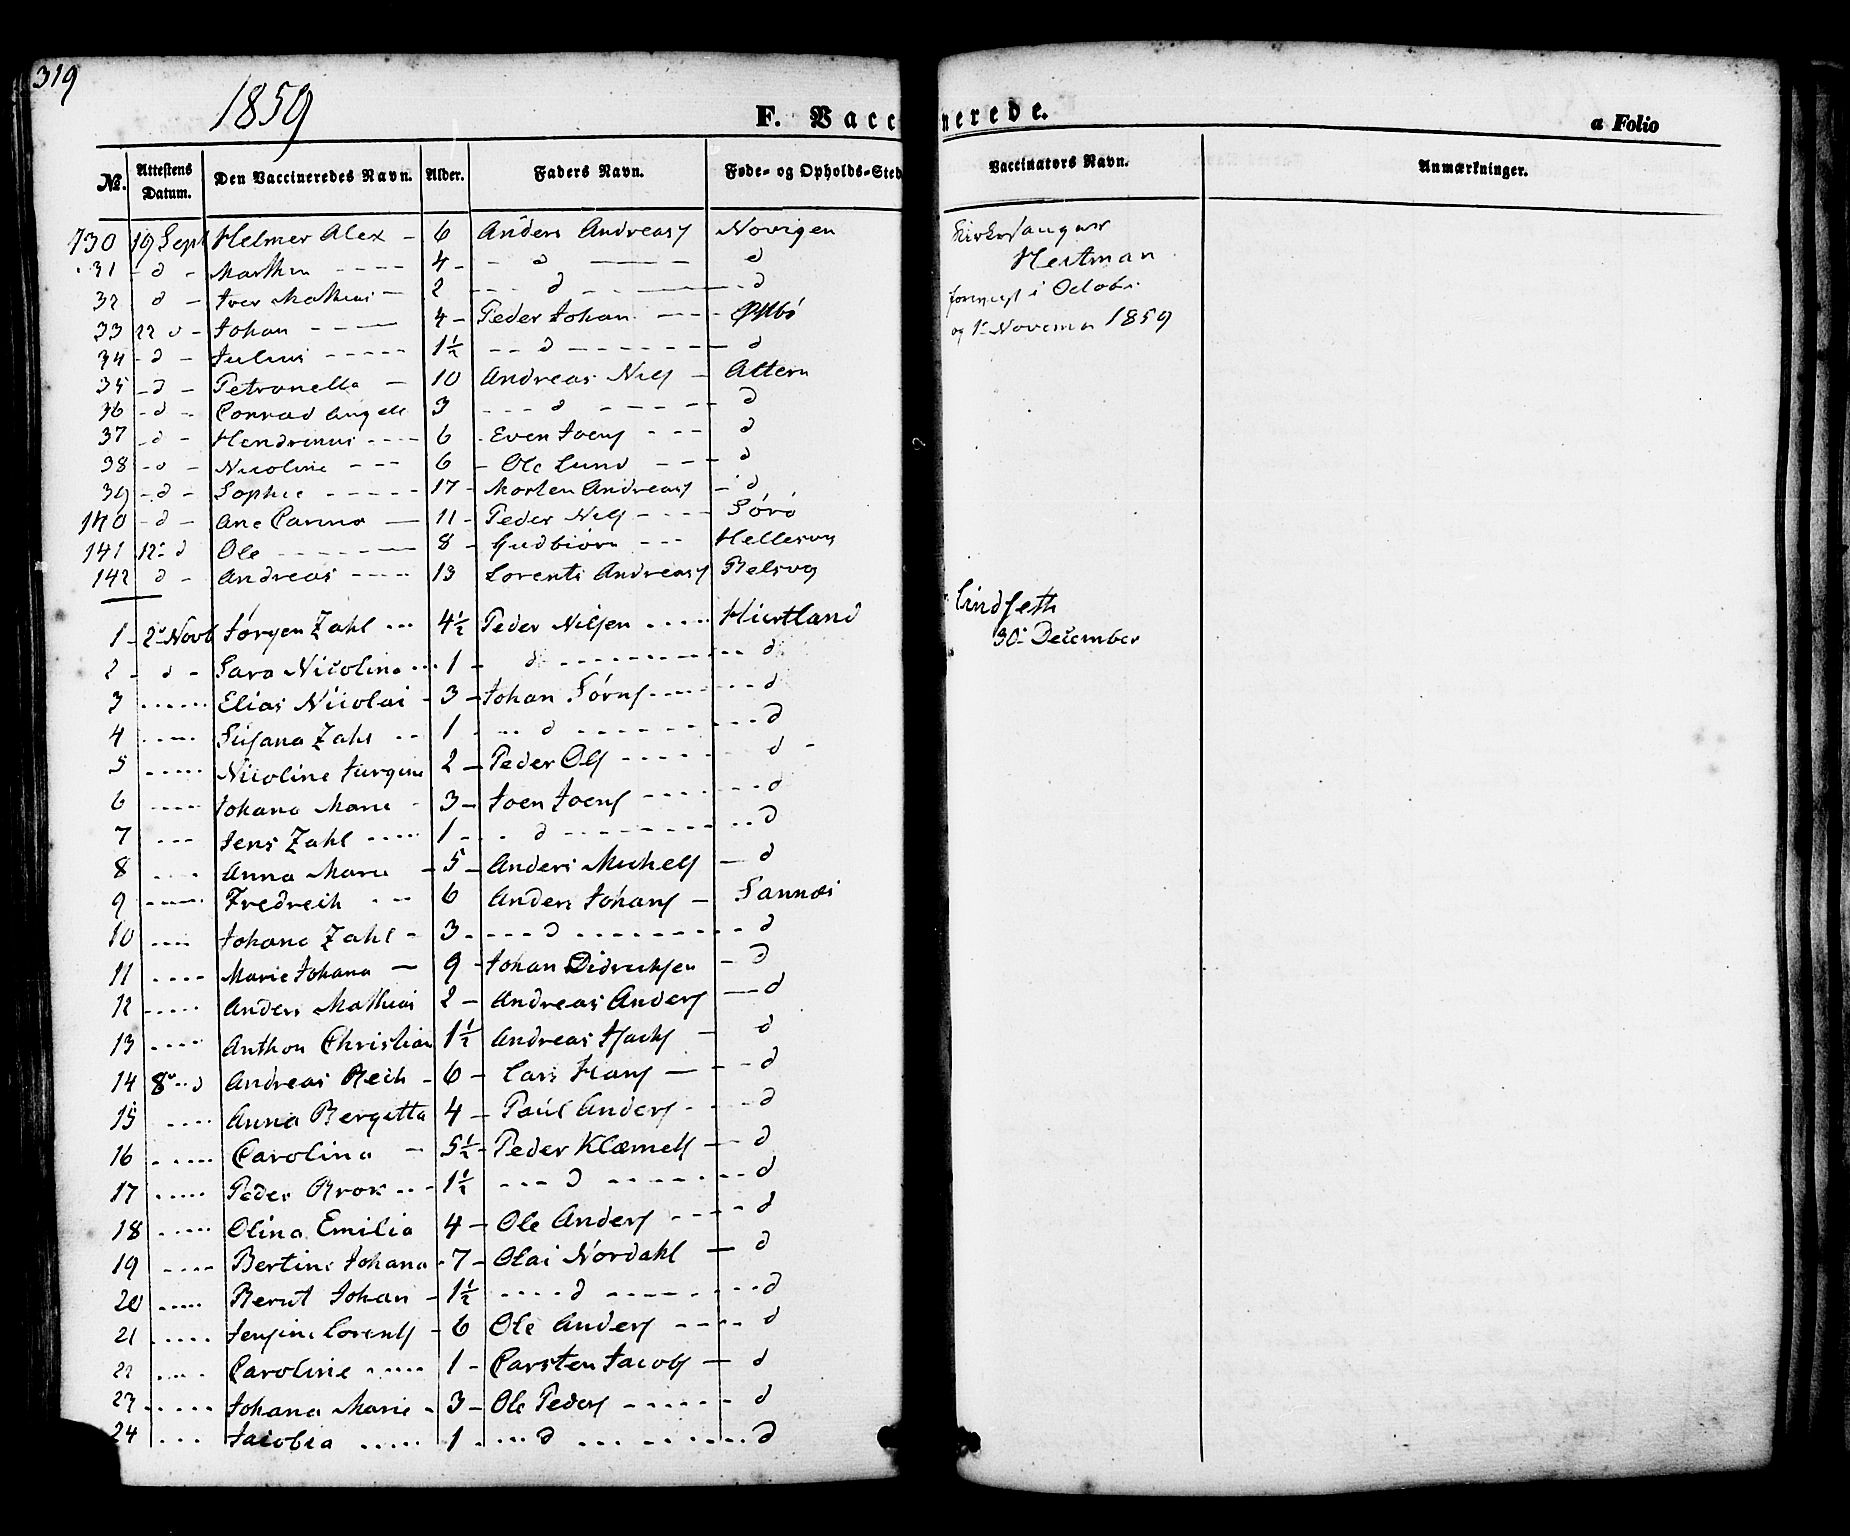 319
1859
F. Vaccinerede.
a Folio
No. Attestens Datum. Den Vaccineredes Navn. Alder. Faders Navn. Føde- og Opholds-Sted Vaccinators Navn. Anmærkninger.
130 19 Sept Helmer Alex - 6 Anders Andreas Novigen Kirkesanger
31 - d - Marthin - - - - 4 - - - d - - - d Hertman
32 d - Iver Mathias - 2 - - - d - - - d i Octobr.
33 22 d - Johan - - - 4 - Peder Johan - - - -
og 1ste Novemer 1859
34 - d - Julius - - - - - 1½ - - d - - - - - - - d
35 - d - Petronella - 10 Andreas Nils - Altern
36 - d - Conrad Angell 3 - - - d - - - - - d
37 - d - Hendrinus - - - - 6 - Even Joens - - - d
38 - d - Nicoline - - - 6 - Ole Lund - - - d
39 - d - Sophie - - - - - 17 - Morten Andreas - d
140 - d - Ane Carina - 11 - Peder Nils - - - - Sörö
141 12te d Ole - - - - - 8 - Gudbiörn - - - Hellesvig
142 d - Andreas - - - - 13 Lorents Andreas Belsvog
Lindseth
1 - 2de Novb Jørgen Zahl - - - 4½ Peder Nilsen - - - - - Hiertland
30te December
2 - d - Sara Nicolina - - - 1 - d - - - - - - - - - d
3 - - - - - - Elias Nicolai - 3 - Johan Sörns - - - - - - - d
4 - - - - Susana Zahl - - 1 - - - d - - - - - - - - - d
5 - - - - - Nicoline Jurgine 2 - Peder Ols - - - - - d -
6 - - - - Johana Marie - 3 - Joen Joens - - - - - - d
7 - - - Jens Zahl - - - - - 1 - - - d - - - - - - - - - d
8 - - - Anna Marie - 5 - Anders Michels - d
9 - - - - Fredrich - - - 6 Anders Johans - Sannæs
10 - - - - Johana Zahl - 3 - - - - d - - - - - - - - - d
11 - - - - Marie Johana - 9 - Johan Didrichsen - d
12 - - - - - Anders Mathias 2 - Andreas Anders - d
13 - - - - Anthon Christian 1½ Andreas - d
14 8de - - d Andreas Reih - 6 - Lars Hans - - - d
15 - - - - Anna Bergetta 4 - Paul Anders - - - - d
16 - - - - - Carolina - 5½ - Peder Klæmets - - d
17 - - - - - Peder Brox - - - 1½ - - - d - - - - - - - d
18 - - - - - Olina Emilia 4 - Ole Anders - - - - - d
19 - - - - Bertine Johana - 7 - Olai Nordahl - d
20 - - - - - Berut Johan - 1½ - - - - d - - - - - - - - d
21 - - - - - Jensine Lorents - 6 Ole Anders - - - - d
22 - - - - Caroline - - - - - 1 - Carsten Jacobs - d
23 - - - - - Johana Marie - 3 - Ole Peders - - - - - - d
24 - - - Jacobia - - - - - 1 - - - - d - - - - - - - - - d